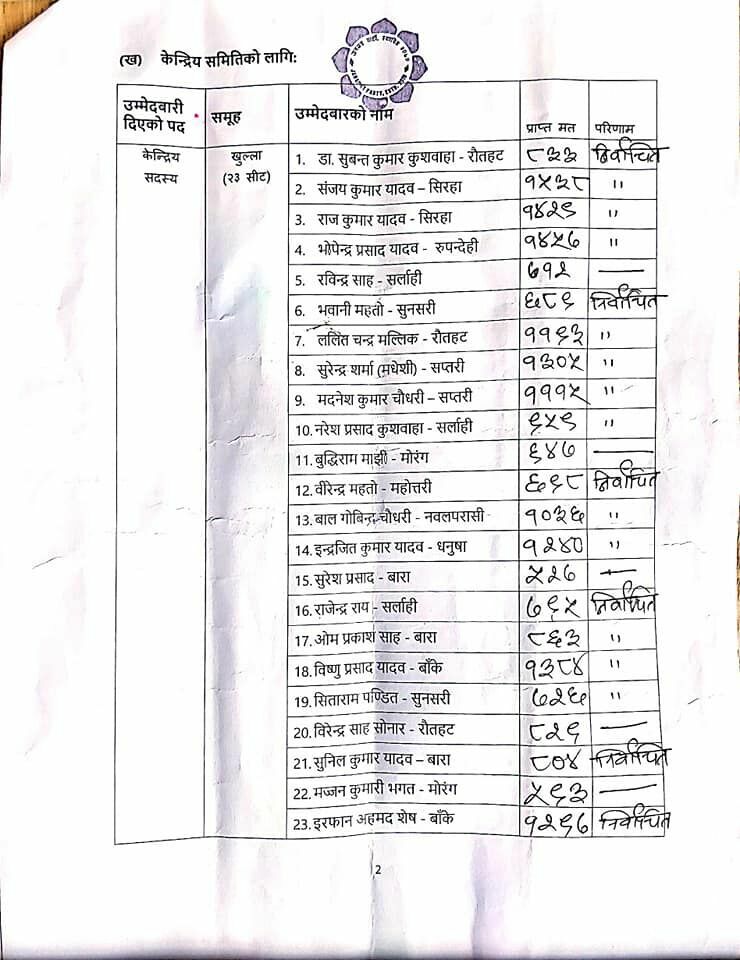 (ख) केन्द्रिय समितिको लागि:
उम्मेदवारी दिएको पद समूह उम्मेदवारको नाम प्राप्त मत परिणाम
केन्द्रिय सदस्य खुल्ला (२३ सीट)
1. डा. सुबन्त कुमार कुशवाहा - रौतहट ८३३ निर्वाचित
2. संजय कुमार यादव – सिरहा १५३८ "
3. राज कुमार यादव - सिरहा १४२९ "
4. भोपेन्द्र प्रसाद यादव - रुपन्देही १४५७ "
5. रविन्द्र साह - सर्लाही ७१२ —
6. भवानी महतो - सुनसरी ६८६ निर्वाचित
7. ललित चन्द्र मल्लिक - रौतहट ११६३ "
8. सुरेन्द्र शर्मा (मधेशी) - सप्तरी १३०५ "
9. मदनेश कुमार चौधरी – सप्तरी १११५ "
10. नरेश प्रसाद कुशवाहा - सर्लाही "
11. बुद्धिराम माझी - मोरंग ६४७ —
12. वीरेन्द्र महतो - महोत्तरी निर्वाचित
13. बाल गोबिन्द चौधरी - नवलपरासी १०३६ "
14. इन्द्रजित कुमार यादव - धनुषा १२४० "
15. सुरेश प्रसाद - बारा ५२७ —
16. राजेन्द्र राय - सर्लाही निर्वाचित
17. ओम प्रकाश साह - बारा ८६३ "
18. विष्णु प्रसाद यादव - बाँके १३८४ "
19. सिताराम पण्डित - सुनसरी ७२६ "
20. विरेन्द्र साह सोनार - रौतहट —
21. सुनिल कुमार यादव – बारा ८०४ निर्वाचित
22. मज्जन कुमारी भगत - मोरंग ५६३ —
23. इरफान अहमद शेष - बाँके निर्वाचित
2